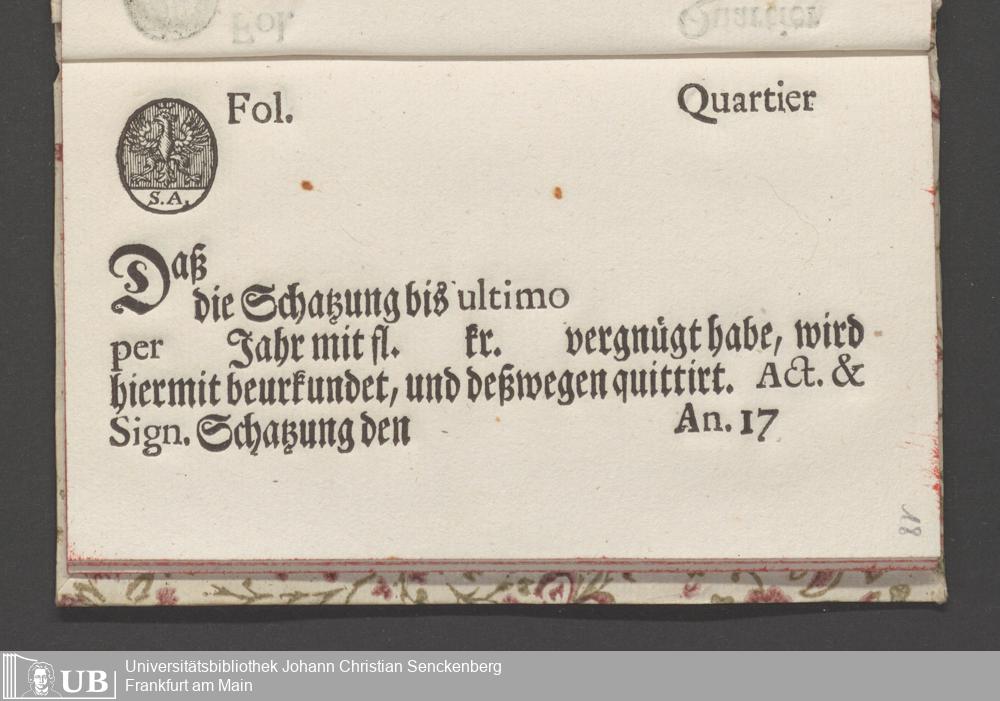 Fol. Quartier
Fol. Quartier
S.A.
Daß
die Schatzung bis ultimo
per Jahr mit fl. kr. vergnügt habe, wird
hiermit beurkundet, und deßwegen quittirt. Act. &
Sign. Schatzung den An. 17
18
UB Universitätsbibliothek Johann Christian Senckenberg
Frankfurt am Main